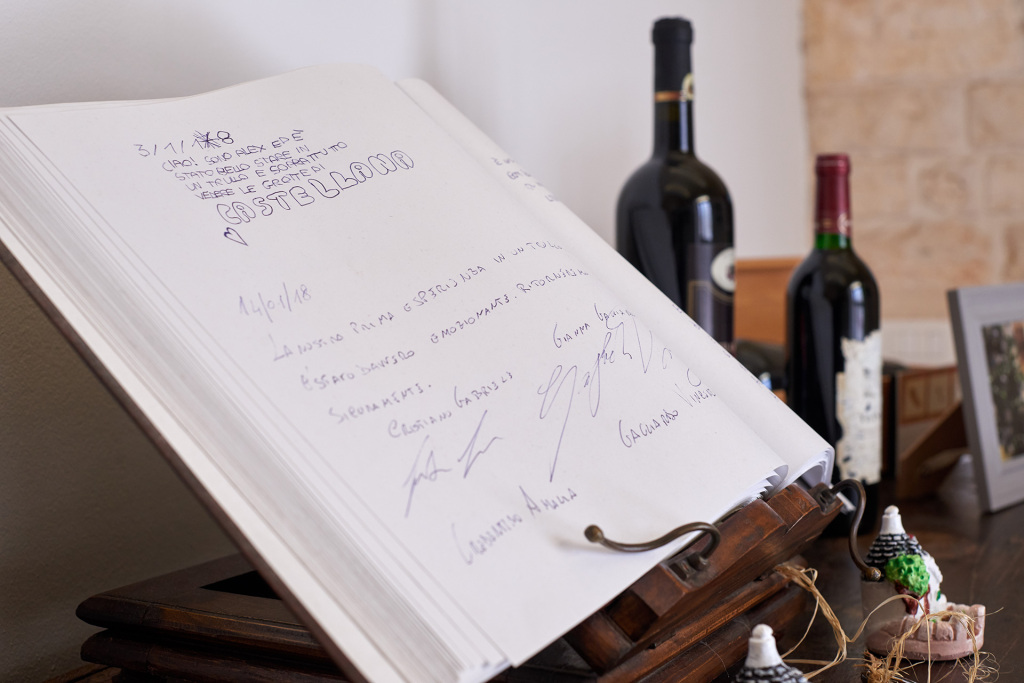 3/1/18
CIAO! SONO ALEX ED È
STATO BELLO STARE IN
UN TRULLO E SOPRATTUTTO
VEDERE LE GROTTE DI
CASTELLANA
14/01/18
LA NOSTRA PRIMA ESPERIENZA IN UN
È STATO DAVVERO EMOZIONANTE. RITORNEREMO
SICURAMENTE.
GIANNA
GABRIELE
GAGLIARDO
GAGLIARDO AMALIA